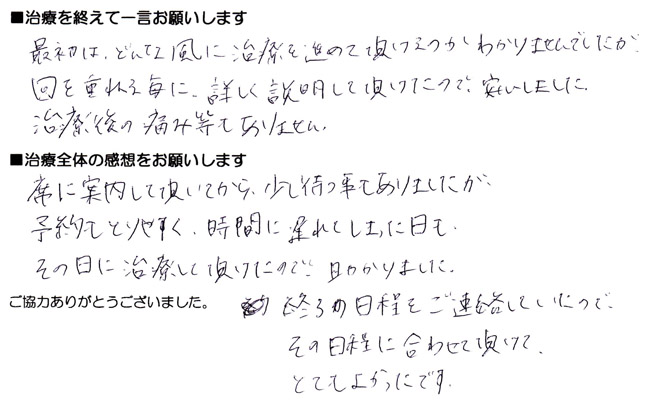 ■治療を終えて一言お願いします
最初は、どんな風に治療を進めて頂けるのかわかりませんでしたが、
回を重ねる毎に、詳しく説明して頂けたので、安心しました。
治療後の痛み等もありません。
■治療全体の感想をお願いします
席に案内して頂いてから、少し待つ事もありましたが、
予約もとりやすく、時間に遅れてしまった日も、
その日に治療して頂けたので、助かりました。
ご協力ありがとうございました。
終る日程をご連絡していたので、
その日程に合わせて頂けて、
とてもよかったです。